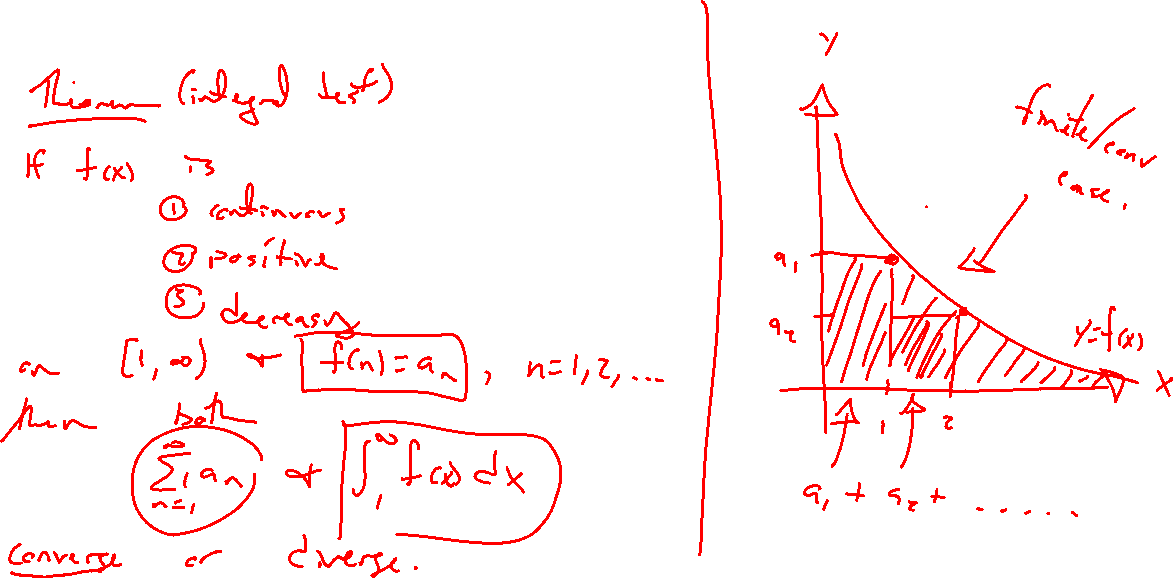 Theorem (integral test)
If f(x) is
① continuous
② positive
③ decreasing
on [1, ∞) & f(n) = aₙ, n = 1, 2, ...
then both
∑ₙ₌₁^∞ aₙ & ∫₁^∞ f(x) dx
converge or diverge.
y
finite/conv
case.
a₁
a₂
y = f(x)
x
1 2
a₁ + a₂ + ......